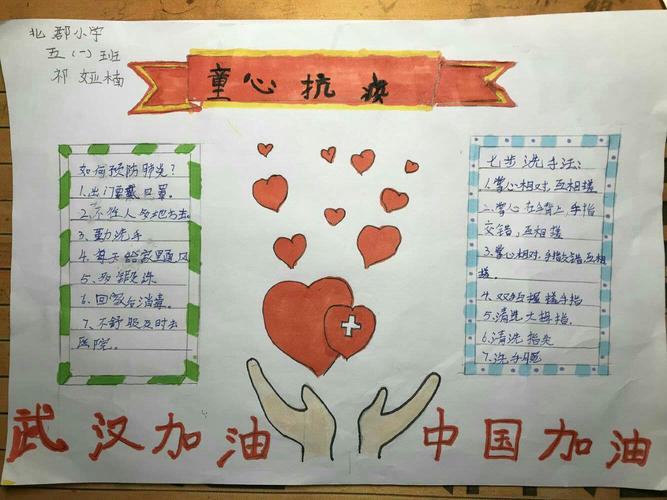 北郡小学
五(一)班
祁娅楠
童心抗疫
如何预防肺炎?
1.出门要戴口罩。
2.不往人多地方去。
3.勤洗手
4.每天给家里通风
5.多锻珠
6.回家后消毒。
7.不舒服及时去
医院。
七步洗手法:
1.掌心相对,互相搓
2.掌心在手背上,手指
交错,互相搓
3.掌心相对,手指交错互相
搓。
4.双手互握搓手指
5.清洗大拇指。
6.清洗指尖
7.洗手腕
武汉加油
中国加油